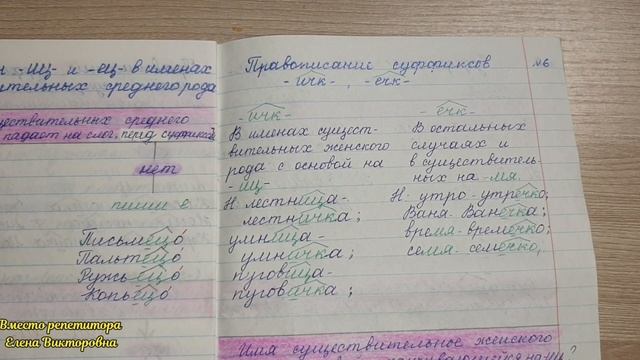 -иц- и -ец- в именах
среднего рода
среднего
падает на слог, перед суффиксом
нет
пиши е
Письмецо́
Пальтецо́
Ружьецо́
Копьецо́
Правописание суффиксов №6
-ичк-, -ечк-
-ичк-
В именах сущест-
вительных женского
рода с основой на
-иц-
Н. лестница-
лестничка;
умница-
умничка;
пуговица-
пуговичка;
-ечк-
В остальных
случаях и
в существитель-
ных на -мя.
Н. утро-утречко;
Ваня-Ванечка;
время-времечко;
семя-семечко,
Имя существительное женского
Вместо репетитора
Елена Викторовна